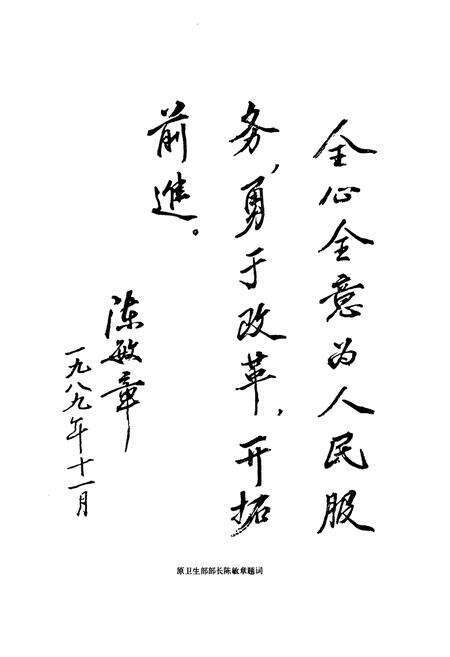 全心全意为人民服
务，勇于改革，开拓
前進。
陈敏章
一九八九年十一月
原卫生部部长陈敏章题词